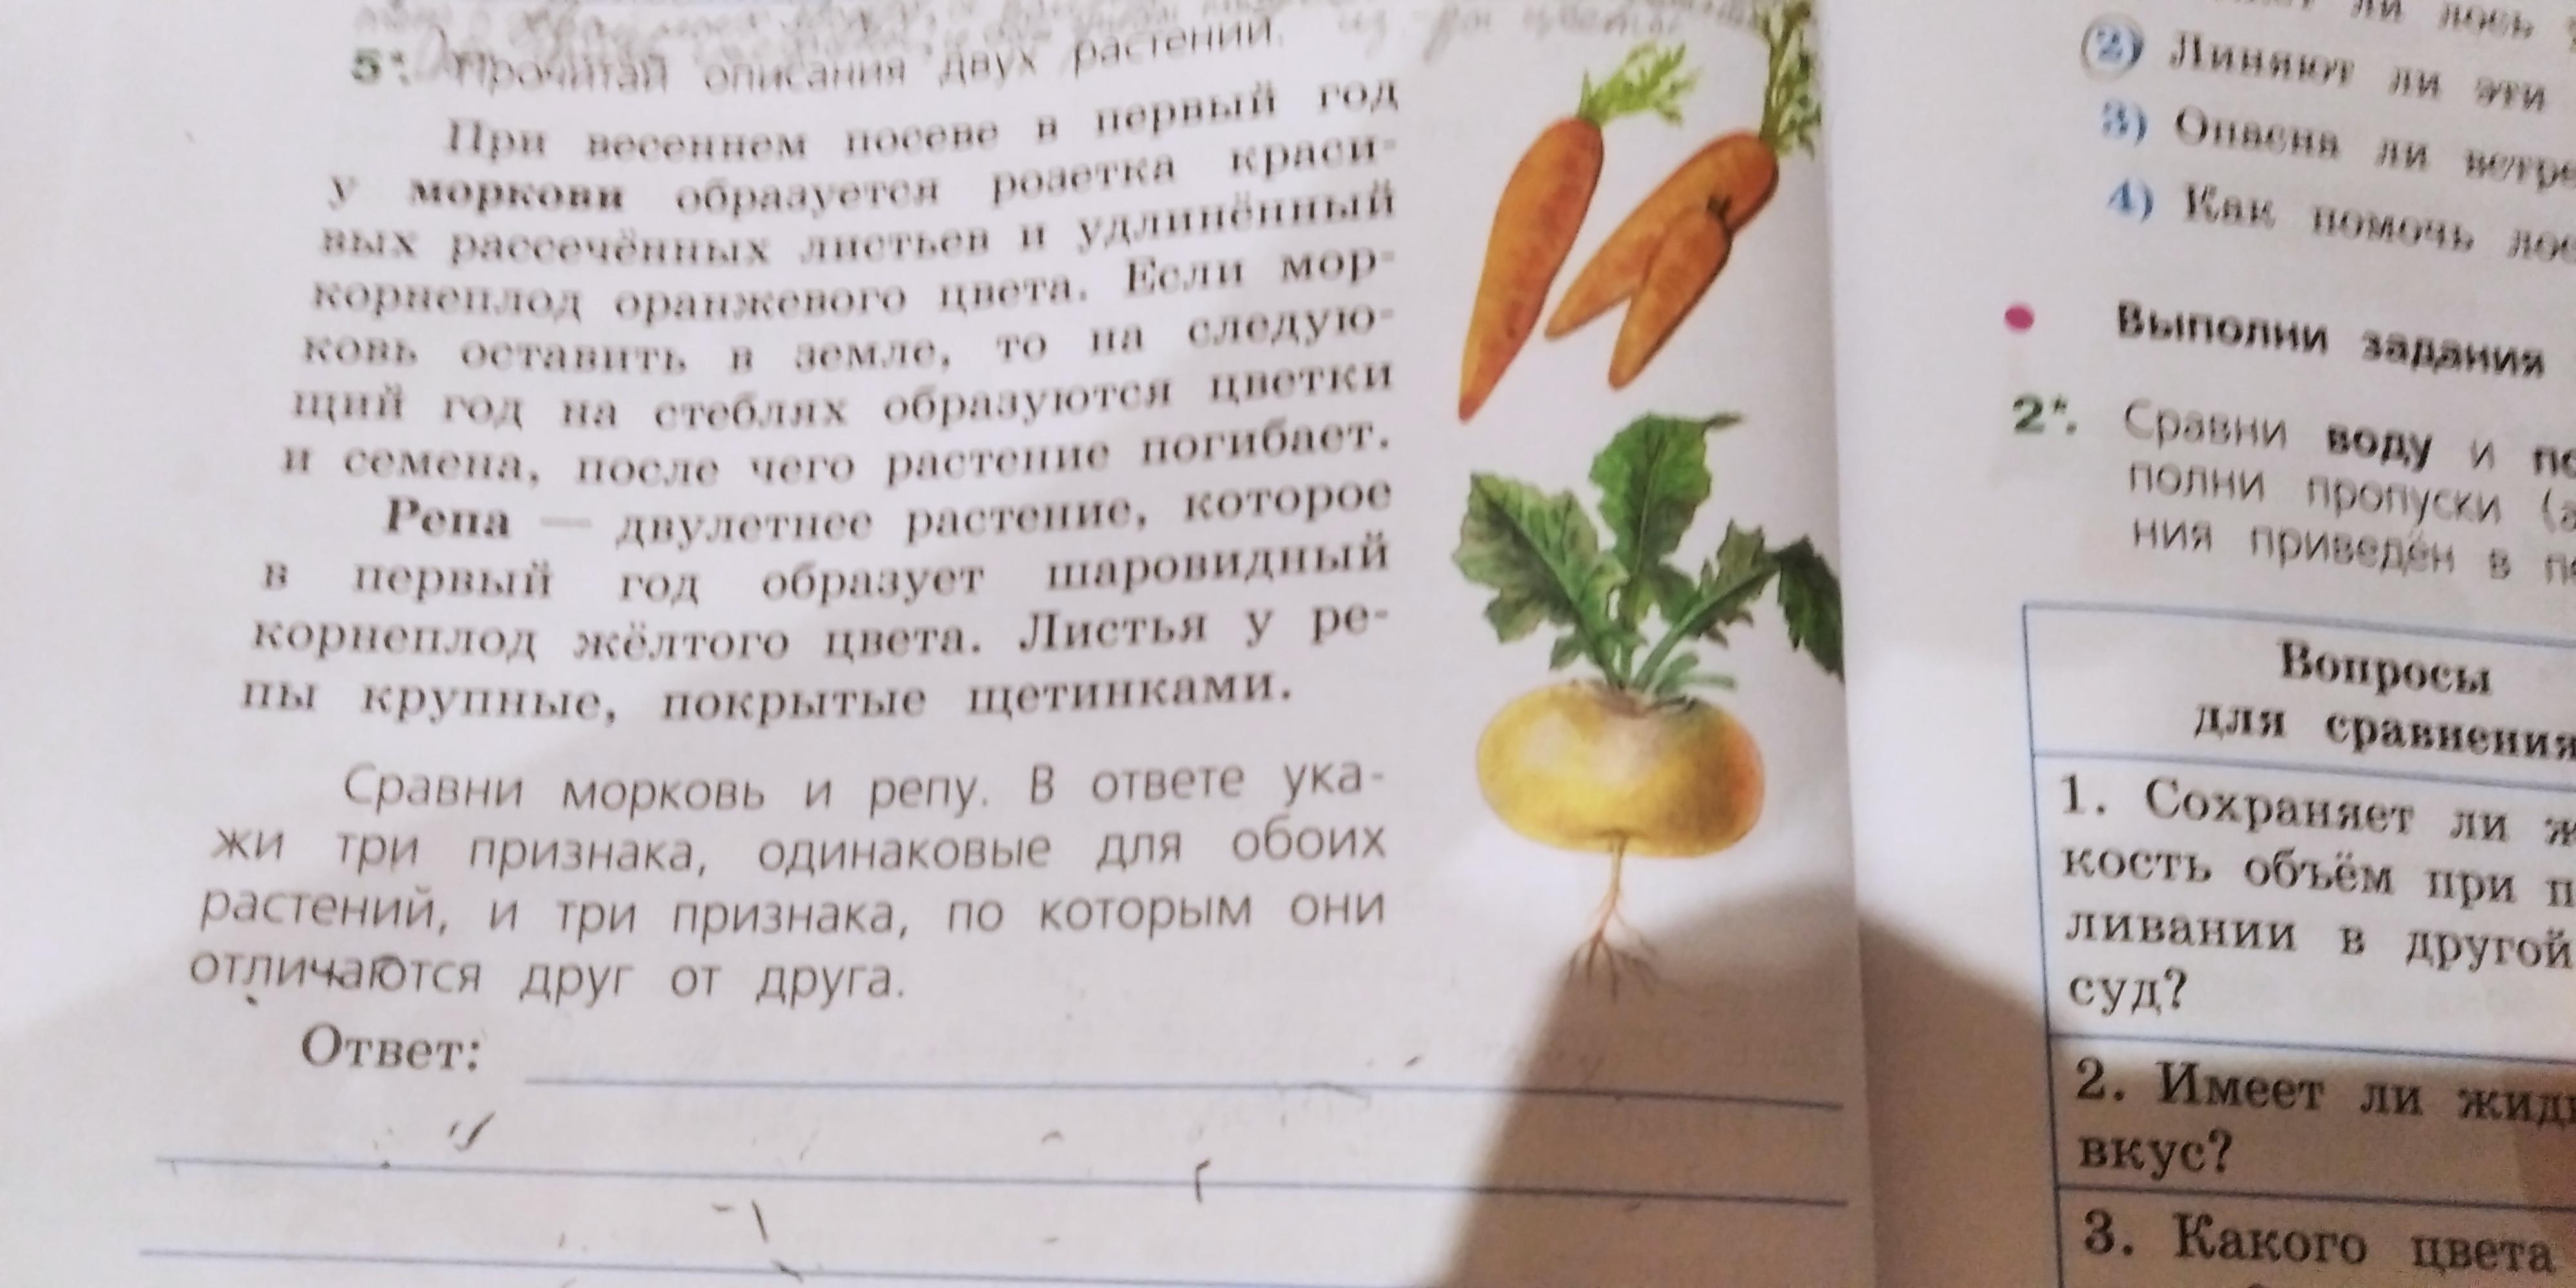 5*. Прочитай описания двух растений.
При весеннем посеве в первый год
у моркови образуется розетка краси-
вых рассечённых листьев и удлинённый
корнеплод оранжевого цвета. Если мор-
ковь оставить в земле, то на следую-
щий год на стеблях образуются цветки
и семена, после чего растение погибает.
Репа — двулетнее растение, которое
в первый год образует шаровидный
корнеплод жёлтого цвета. Листья у ре-
пы крупные, покрытые щетинками.
Сравни морковь и репу. В ответе ука-
жи три признака, одинаковые для обоих
растений, и три признака, по которым они
отличаются друг от друга.
Ответ:
ли лось
2) Линяют ли эти
3) Опасна ли
4) Как помочь
• Выполни задания
2*. Сравни воду и
полни пропуски
ния приведён в
Вопросы
для сравнения
1. Сохраняет ли
кость объём при п
ливании в другой
суд?
2. Имеет ли жид
вкус?
3. Какого цвета